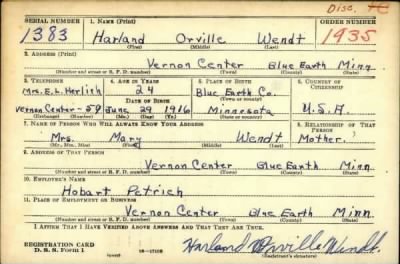 Disc.
SERIAL NUMBER 1. NAME (Print) ORDER NUMBER
1383 Harland Orville Wendt 1935
(First) (Middle) (Last)
2. ADDRESS (Print)
Vernon Center Blue Earth Minn
(Number and street or R. F. D. number) (Town) (County) (State)
3. TELEPHONE 4. AGE IN YEARS 5. PLACE OF BIRTH 6. COUNTRY OF CITIZENSHIP
Mrs. E.L. Herlich 24 Blue Earth Co.
DATE OF BIRTH (Town or county)
Vernon Center-59 June 29 1916 Minnesota U.S.A.
(Exchange) (Number) (Mo.) (Day) (Yr.) (State or country)
7. NAME OF PERSON WHO WILL ALWAYS KNOW YOUR ADDRESS 8. RELATIONSHIP OF THAT PERSON
Mrs. Mary Wendt Mother.
(Mr., Mrs., Miss) (First) (Middle) (Last)
9. ADDRESS OF THAT PERSON
Vernon Center Blue Earth Minn
(Number and street or R. F. D. number) (Town) (County) (State)
10. EMPLOYER'S NAME
Hobart Petrich
11. PLACE OF EMPLOYMENT OR BUSINESS
Vernon Center Blue Earth Minn.
(Number and street or R. F. D. number) (Town) (County) (State)
I AFFIRM THAT I HAVE VERIFIED ABOVE ANSWERS AND THAT THEY ARE TRUE.
REGISTRATION CARD
D. S. S. FORM 1 Harland Orville Wendt.
(Registrant's signature)